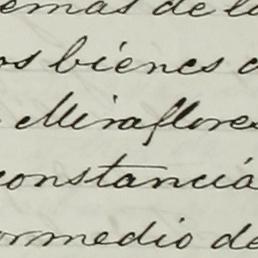 emas de la
os biénes d
Miraflores
constancia
ormedio de